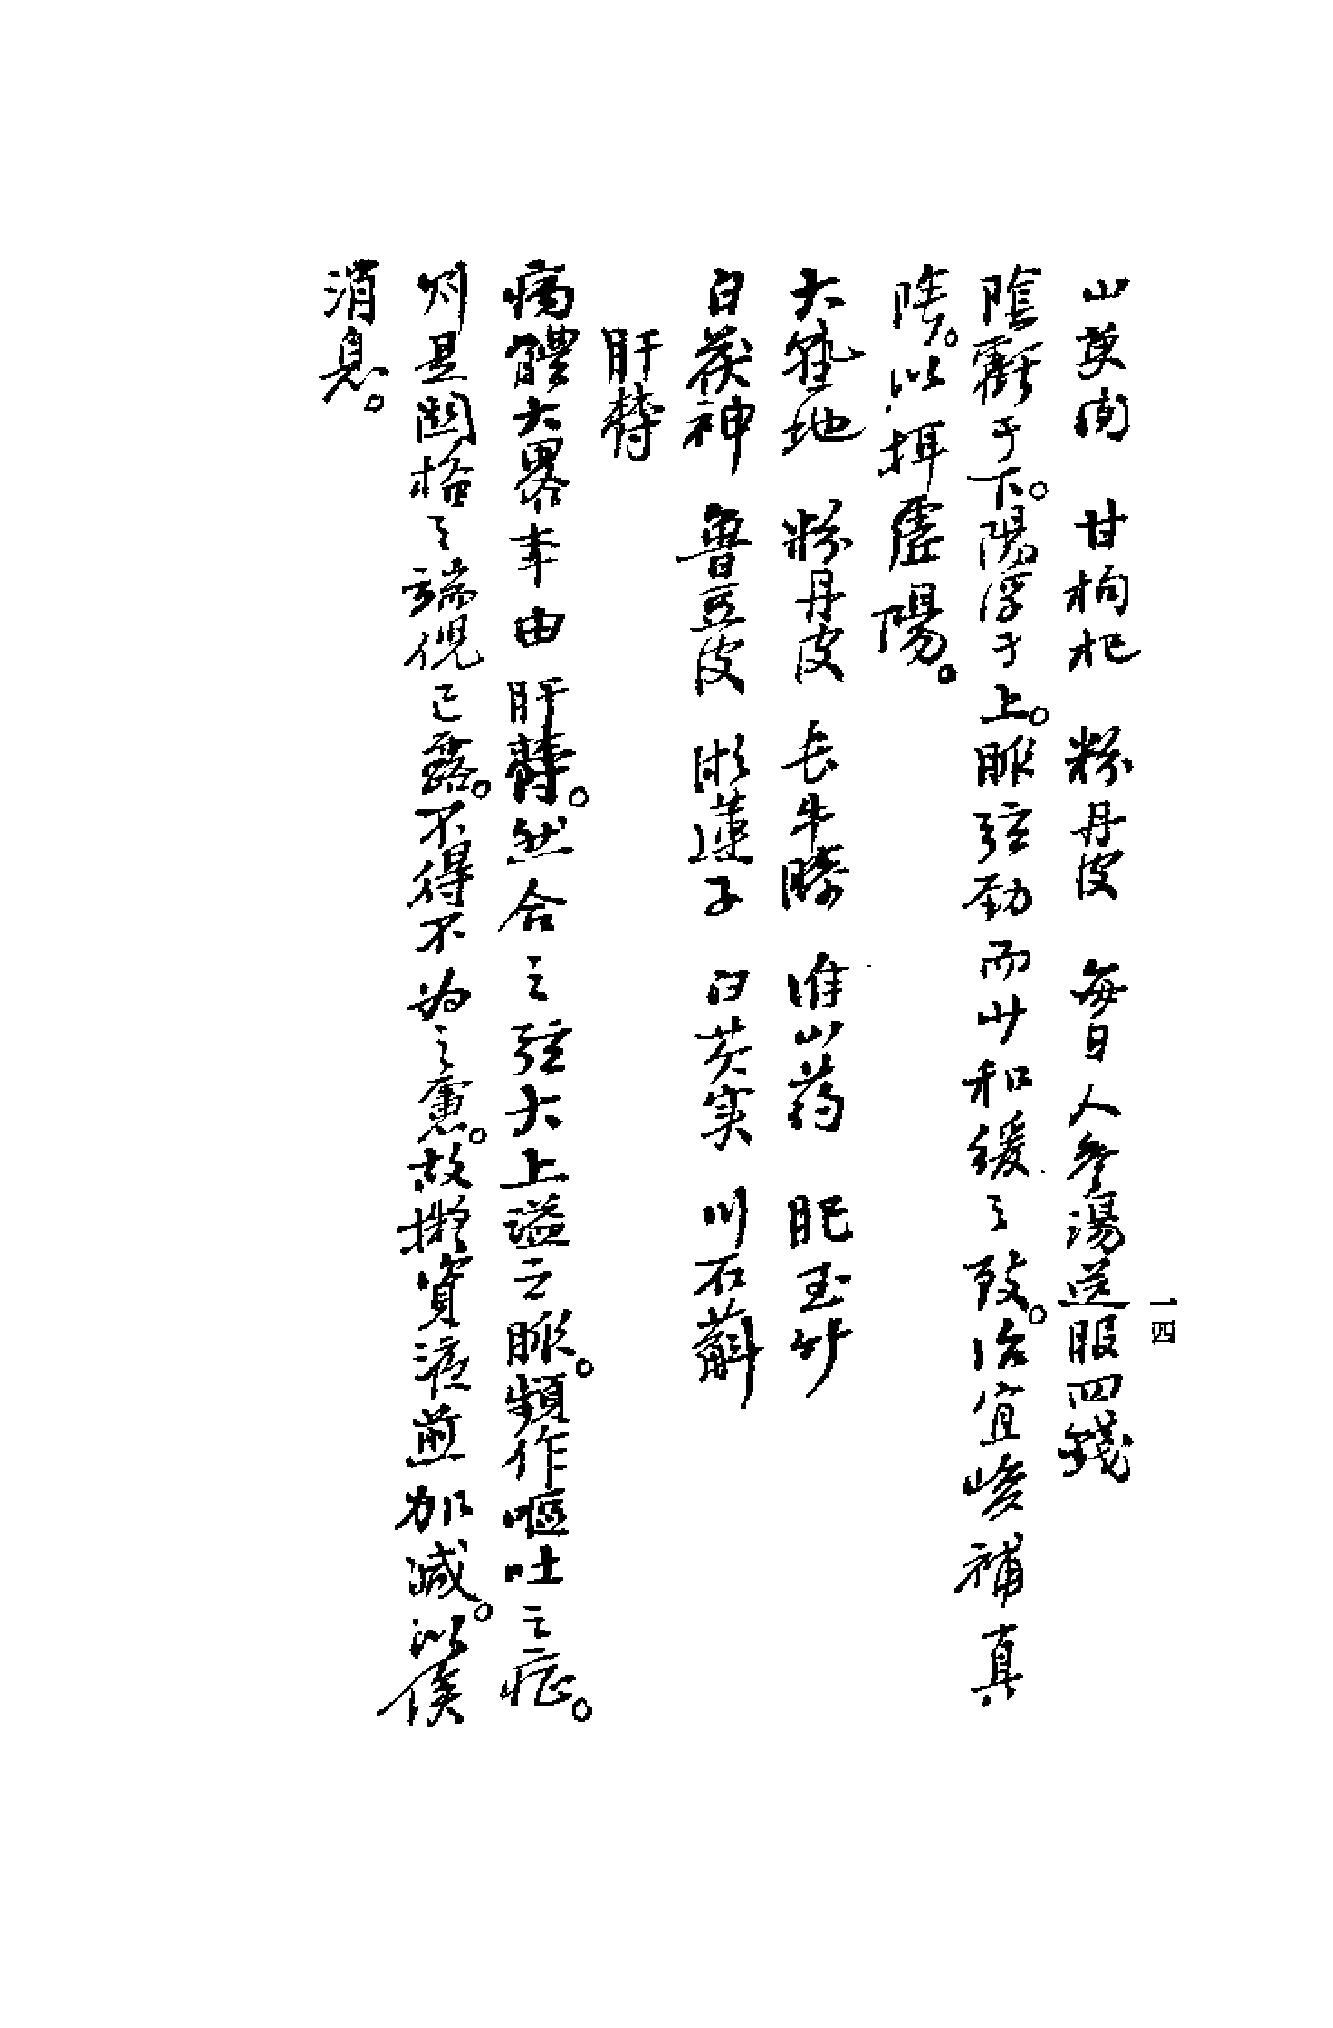 一四
山萸肉　甘枸杞　粉丹皮　每日人參湯送服四錢
陰虧于下。陽浮于上。脈弦勁而少和緩之致。治宜峻補真
陰。以揖虛陽。
大熟地　粉丹皮　長牛膝　淮山药　肥玉竹
白茯神　魯豆皮　湘蓮子　白芡实　川石斛
肝鬱
病體大畧率由肝鬱。然合之弦大上溢之脈。頻作嘔吐之症。
則是關格之端倪已露。不得不为之慮。故擬資液煎加减。以俟
消息。